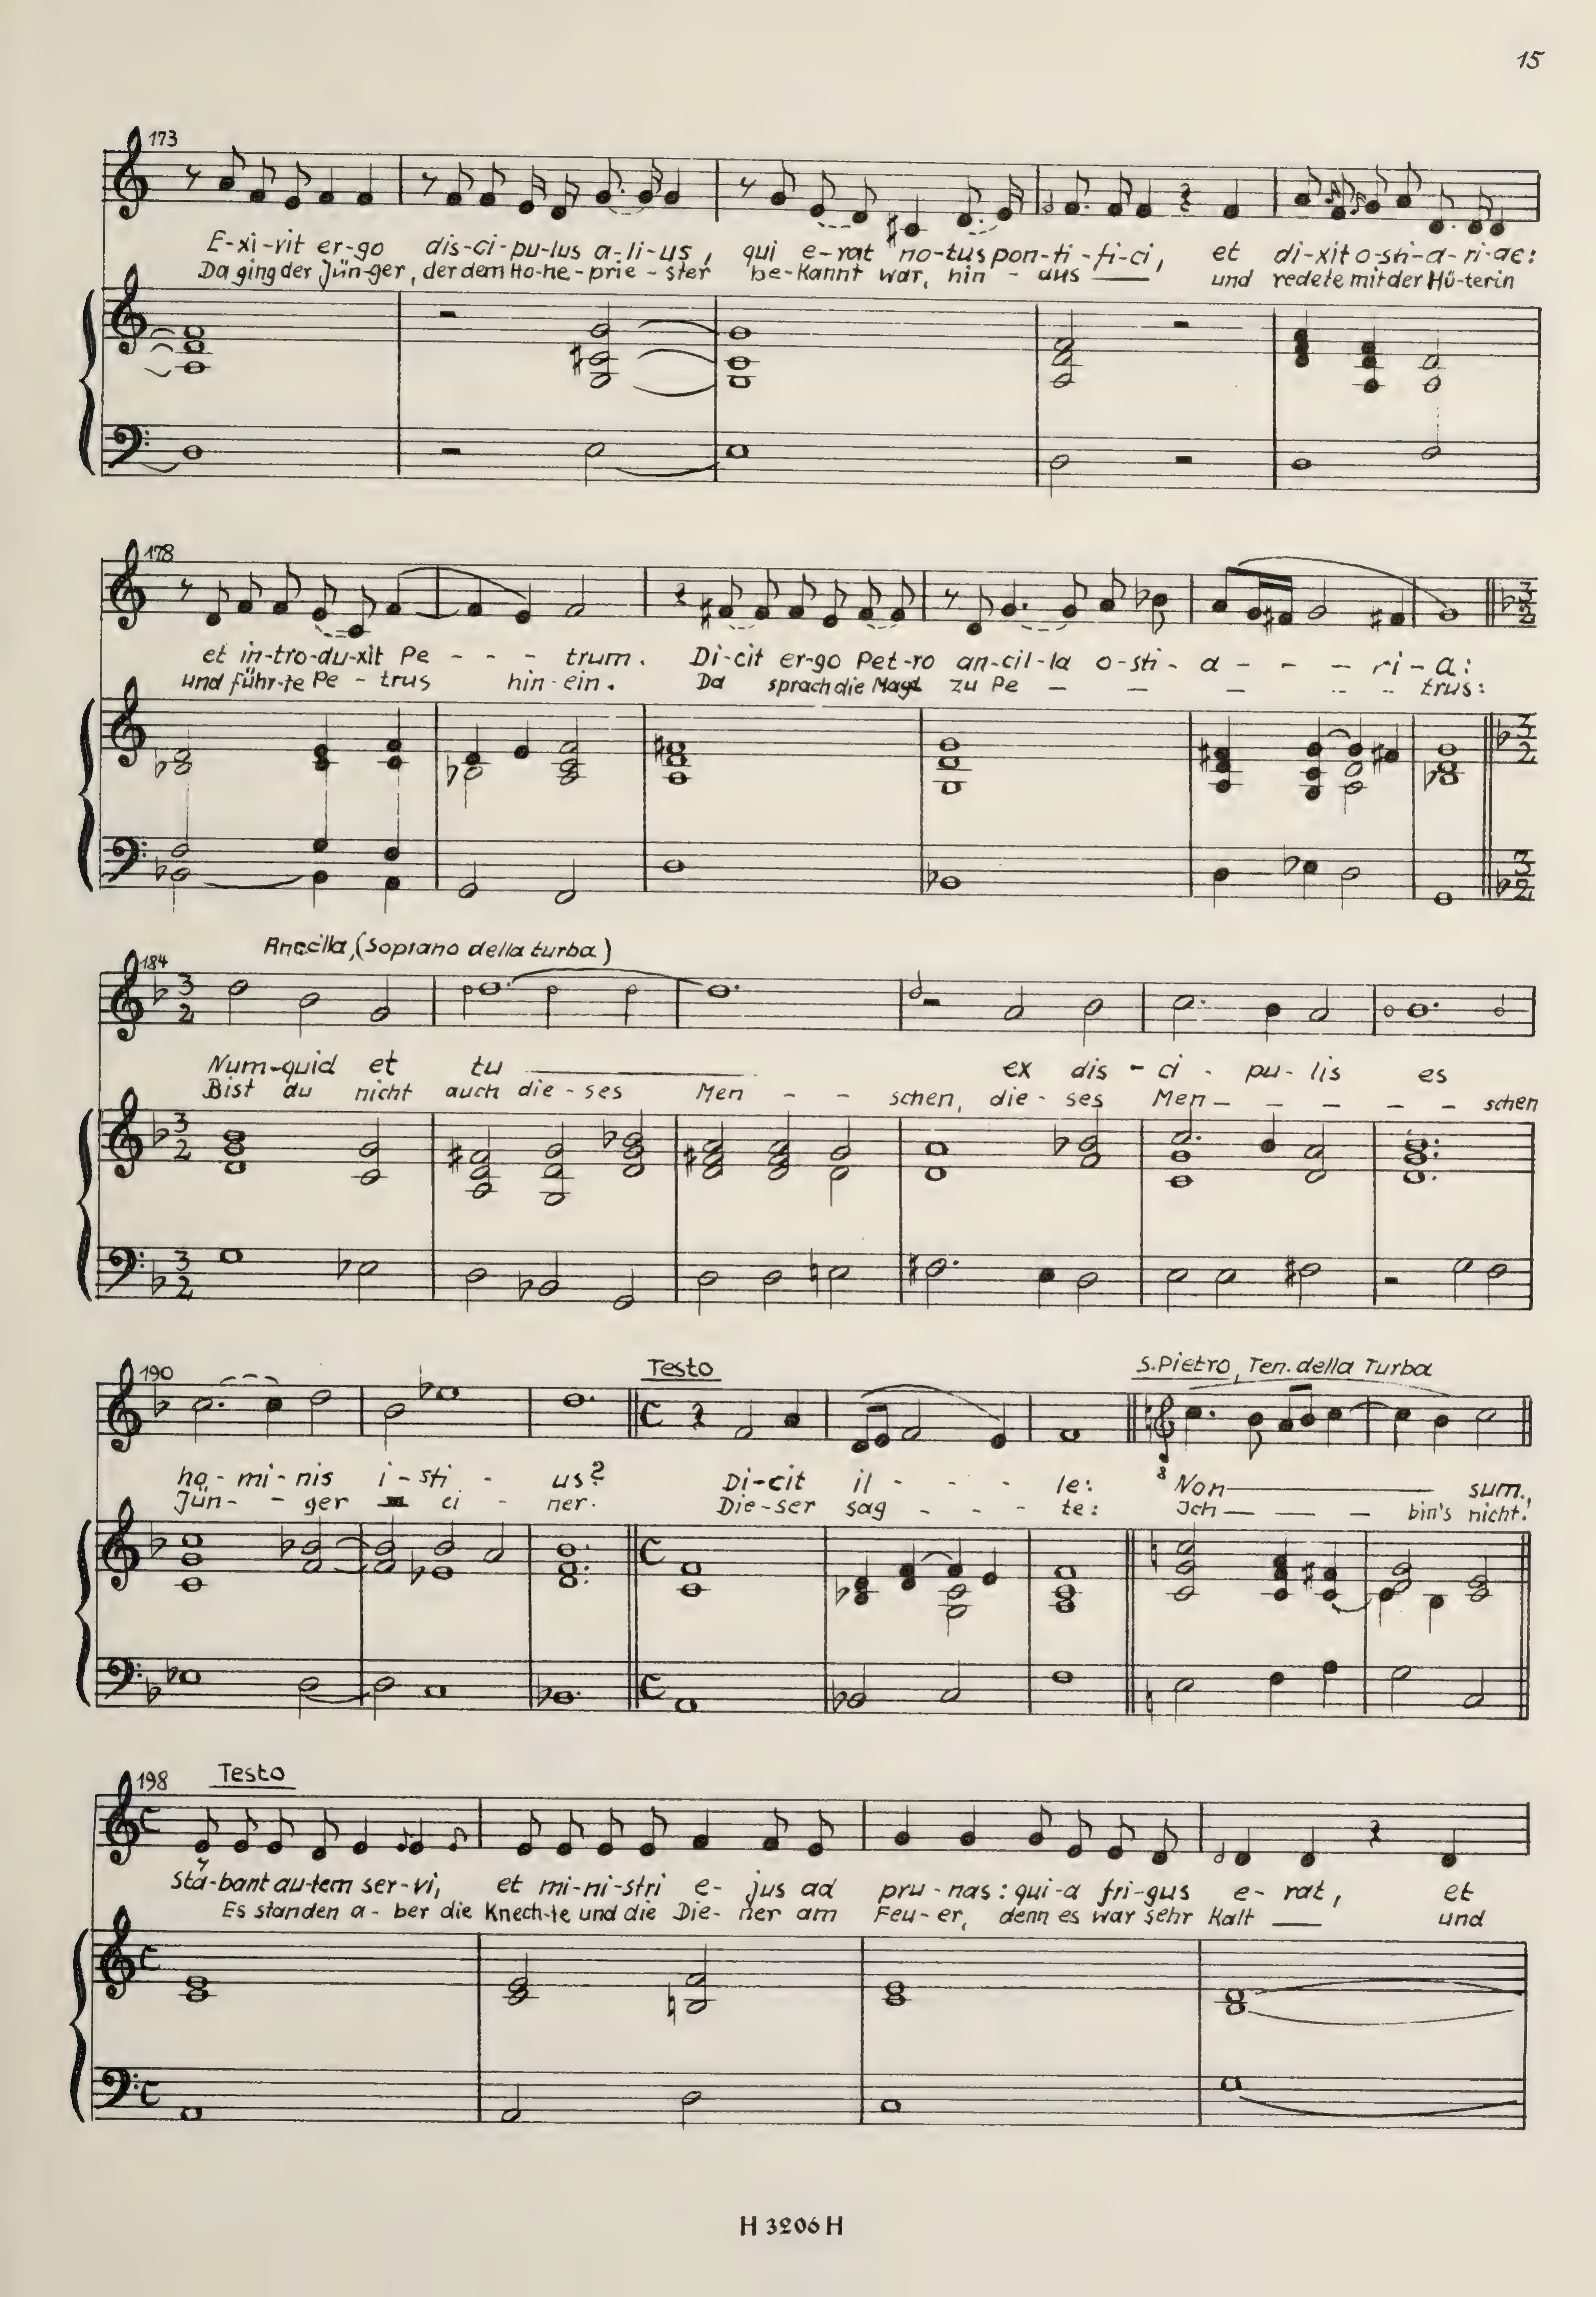 15
173
E-xi-vit er-go dis-ci-pu-lus a-li-us, qui e-rat no-tus pon-ti-fi-ci, et di-xit o-sti-a-ri-ae:
Da ging der Jün-ger, der dem Ho-he-prie-ster be-kannt war, hin-aus und redete mit der Hü-terin
178
et in-tro-du-xit Pe - - - trum. Di-cit er-go Pet-ro an-cil-la o-sti-a - - - ri-a:
und führ-te Pe-trus hin-ein. Da sprach die Magd zu Pe - - - - - trus:
Ancilla, (Soprano della turba)
184
Num-quid et tu ex dis-ci-pu-lis es
Bist du nicht auch die-ses Men - - schen, die-ses Men - - - - - schen
190
Testo
S. Pietro, Ten. della Turba
ho-mi-nis i-sti-us? Di-cit il - - - le: Non sum.
Jün - - ger ei-ner. Die-ser sag - - - te: Ich - - - bin's nicht!
8
198
Testo
Sta-bant au-tem ser-vi, et mi-ni-stri e-jus ad pru-nas: qui-a fri-gus e-rat, et
Es standen a-ber die Knech-te und die Die-ner am Feu-er, denn es war sehr kalt und
H 3206 H